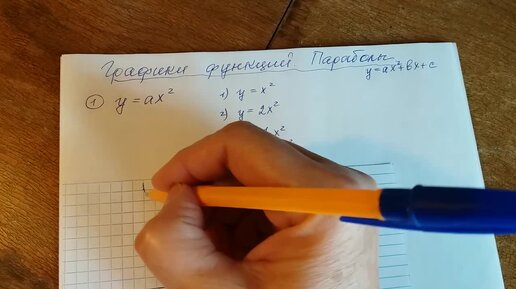 Графики функций. Параболы
y = ax² + bx + c
① y = ax²
1) y = x²
2) y = 2x²
x²